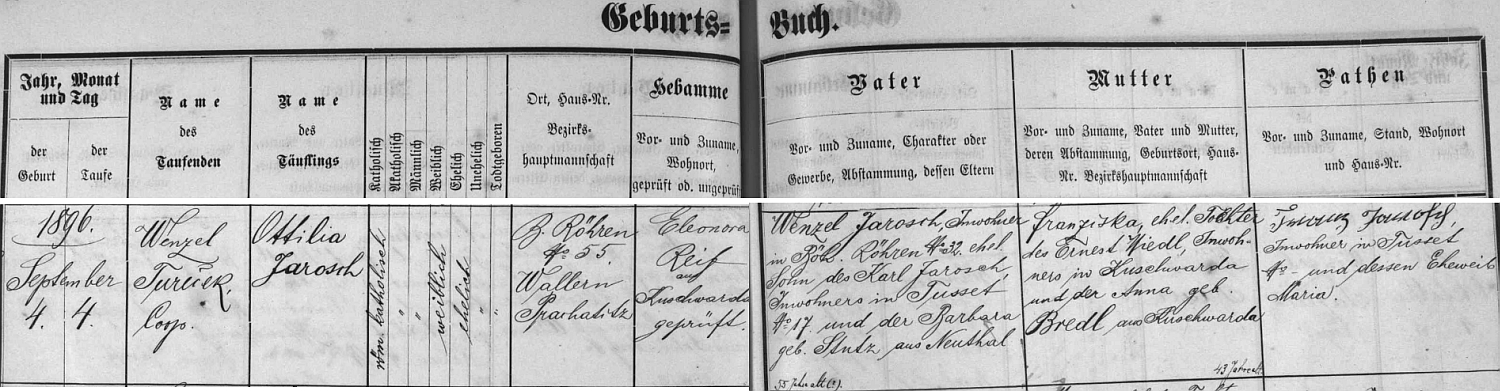 Geburts=
Buch.
Jahr, Monat
und Tag
der
Geburt
der
Taufe
Name
des
Taufenden
Name
des
Täuflings
Katholisch
Akatholisch
Männlich
Weiblich
Ehelich
Unehelich
Todtgeboren
Ort, Haus-Nr.
Bezirks-
hauptmannschaft
Hebamme
Vor- und Zuname,
Wohnort,
geprüft od. ungeprüft
Vater
Vor- und Zuname, Charakter oder
Gewerbe, Abstammung, dessen Eltern
Mutter
Vor- und Zuname, Vater und Mutter,
deren Abstammung, Geburtsort, Haus-
Nr. Bezirkshauptmannschaft
Pathen
Vor- und Zuname, Stand, Wohnort
und Haus-Nr.
1896.
September
4. 4.
Wenzel
Tureček,
Coop.
Ottilia
Jarosch
röm katholisch
"
"
weiblich
ehelich
"
"
B. Röhren
No 55.
Wallern
Prachatitz
Eleonora
Reif
aus
Kuschwarda
geprüft.
Wenzel Jarosch, Inwohner
in Böhm. Röhren No 32, ehel.
Sohn des Karl Jarosch,
Inwohners in Tusset
No 17. und der Barbara
geb. Stutz aus Neuthal
55 Jahre alt (?).
Franziska, ehel. Tochter
des Ernest Wiedl, Inwoh-
ners in Kuschwarda
und der Anna geb.
Bredl aus Kuschwarda
43 Jahre alt
Franz Jarosch,
Inwohner in Tusset
No - und dessen Eheweib
Maria.